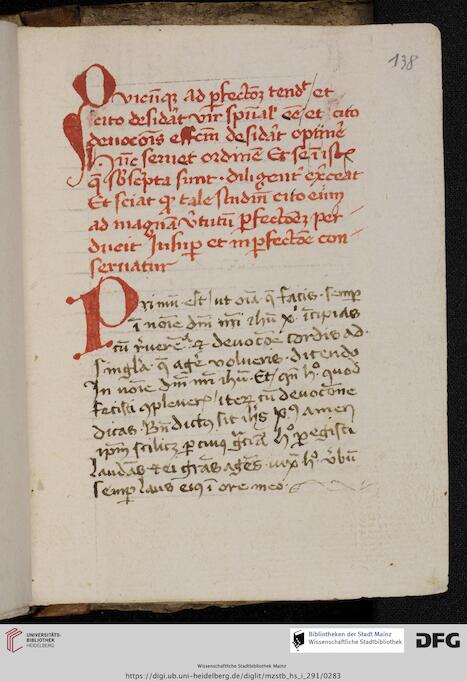 138
Quicu̅qꝫ ad ꝑfectōꝫ tend't et
cito desid'at vir spūal' ēe / et cito
deuocōis eff̄cm desid'at optinē
Hūc seruet ordinē Et se ī istꝭ
q̄ sb̄sc̄pta sunt · diligent' ex̄ceat
Et sciat qꝫ tale studiū cito eūm
ad magnā v̄tutū ꝑfectōeꝫ per
ducit Insuꝑ et in ꝑfectōe con
seruatur
Primū est / ut oīa q̄ facis · semꝑ
ī noīe dn̄i nr̄i ihū xꝰ īcipias
cū deuocōe cordis ad
singl'a q̄ agē volueris · dicendo
In noīe dn̄i nr̄i ihū · Et qn̄ hͦ quod
fecisti ꝯpleuerꝭ / iteꝝ cū deuocōne
dicas · Bn̄dictꝰ sit ihs xpꝰ amen
ip̄m scilicꝫ ꝑ cuiꝰ gr̄ciā hͦ ꝑegisti
laudās · et ei gr̄as agēs · hͦ v̄bū
semꝑ laus eiꝰ ī ore meo ·
UNIVERSITÄTS-
BIBLIOTHEK
HEIDELBERG
Bibliotheken der Stadt Mainz
Wissenschaftliche Stadtbibliothek
DFG
Wissenschaftliche Stadtbibliothek Mainz
https://digi.ub.uni-heidelberg.de/diglit/mzstb_hs_i_291/0283